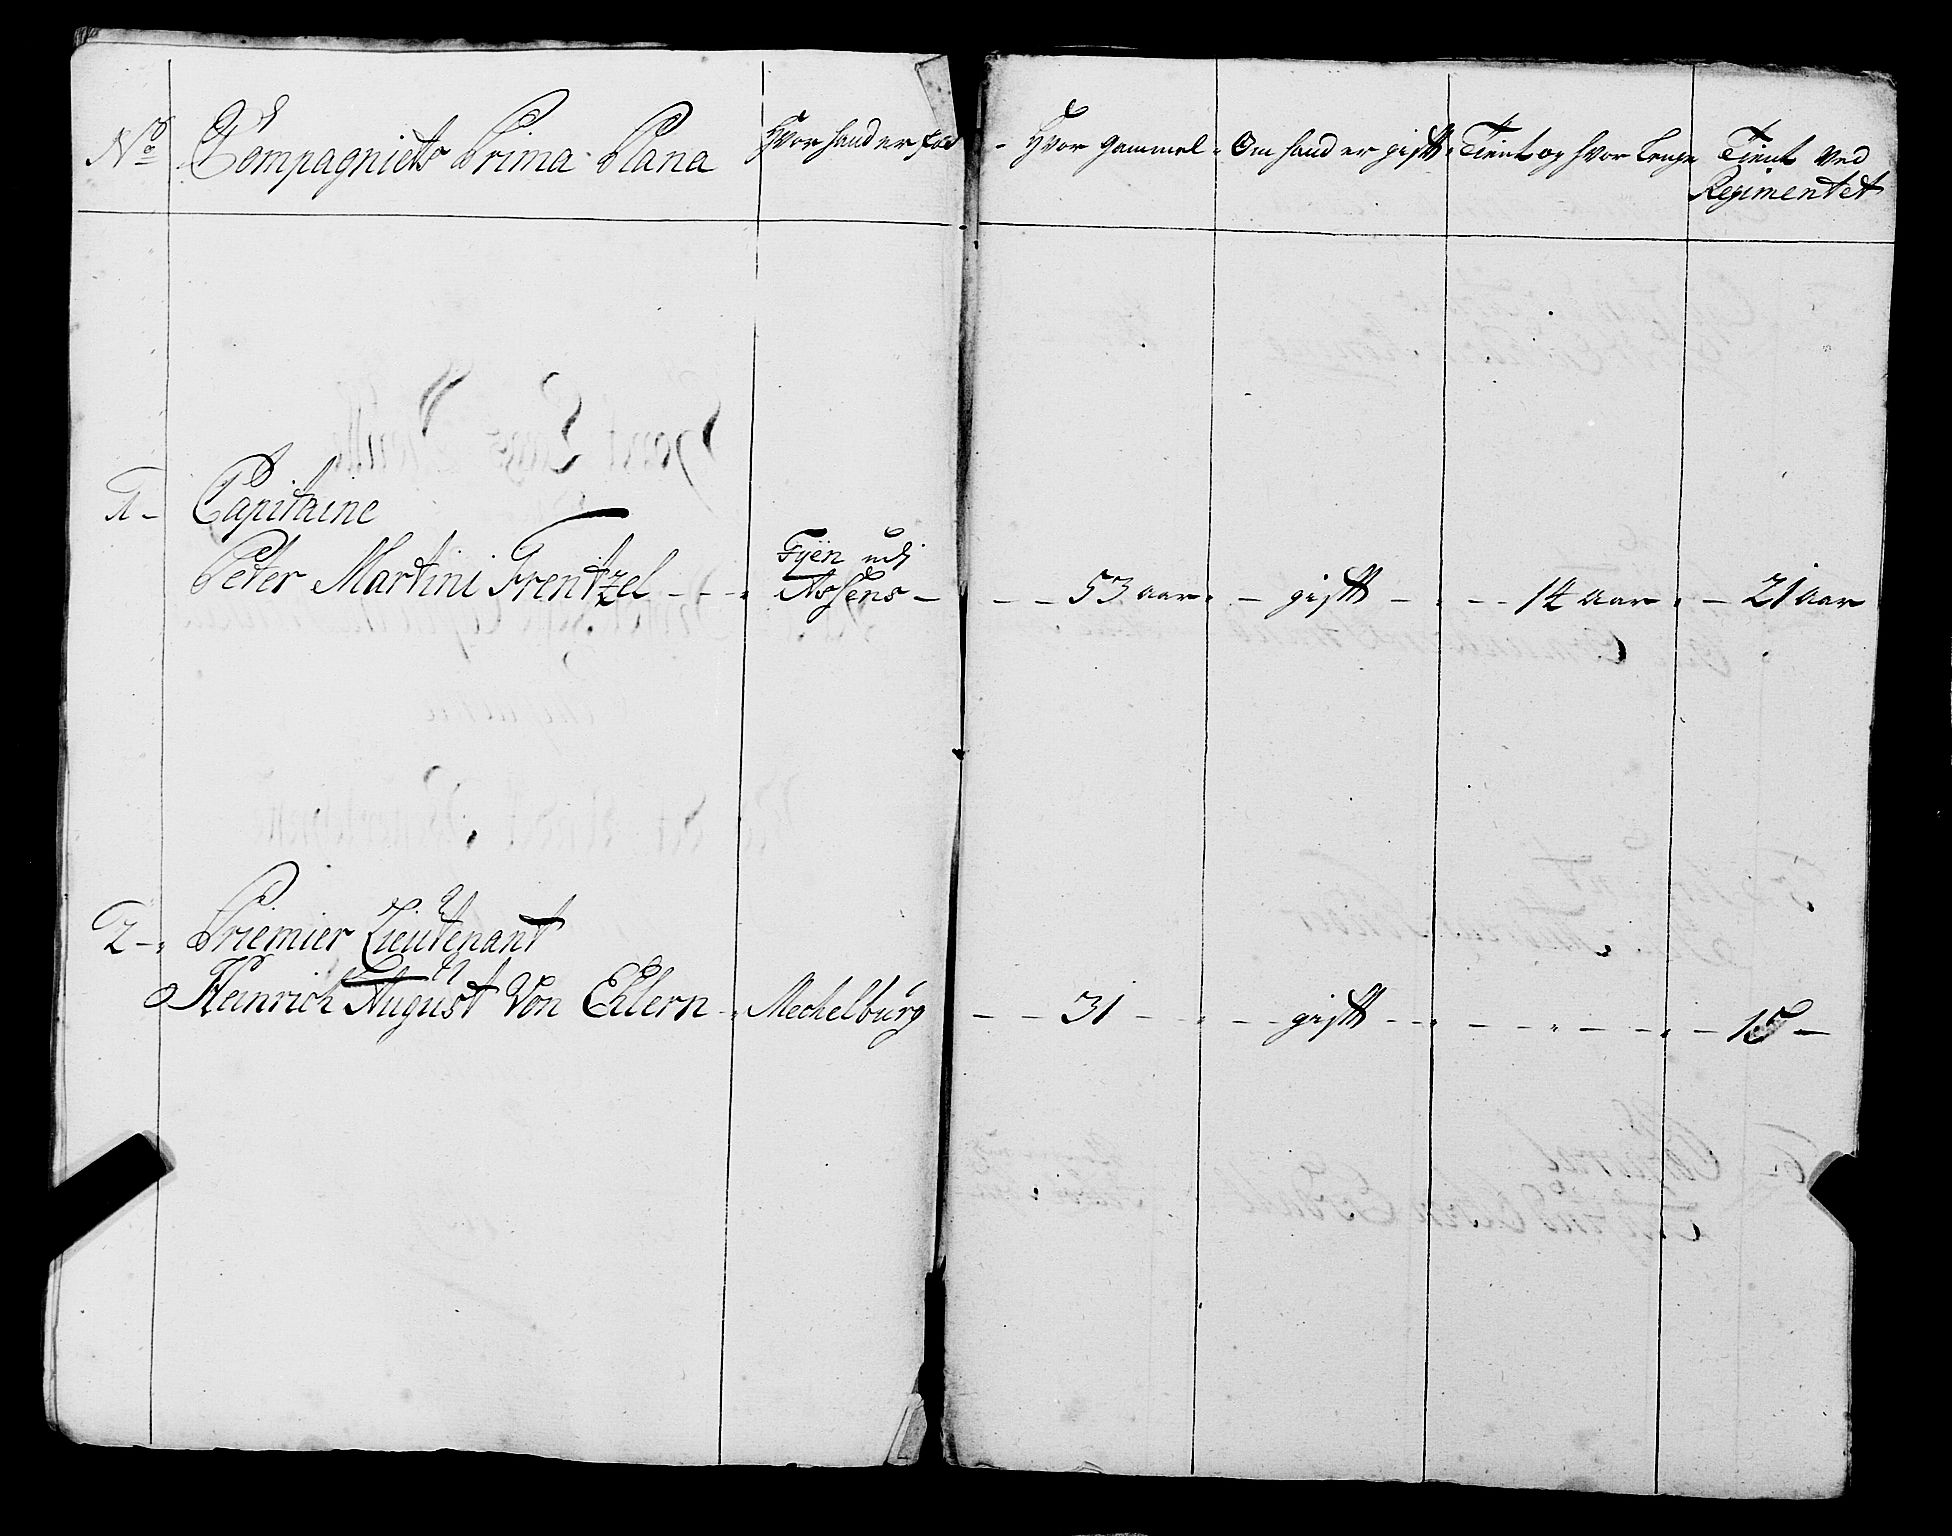 No Compagniets Prima Plana Hvor hand er fød Hvor gammel Om hand er gift Tient og hvor lenge Tient ved
Regimentet
1 - Capitaine
Peter Martini Frentzel - - - Fyen udi
Assens - - - 53 aar - gift - - - 14 aar - 21 aar
2 - Priemier Lieutenant
Heinrich August Von Ehlern - Mechelburg - - 31 - - - - gift - - - - - - - - 15 -